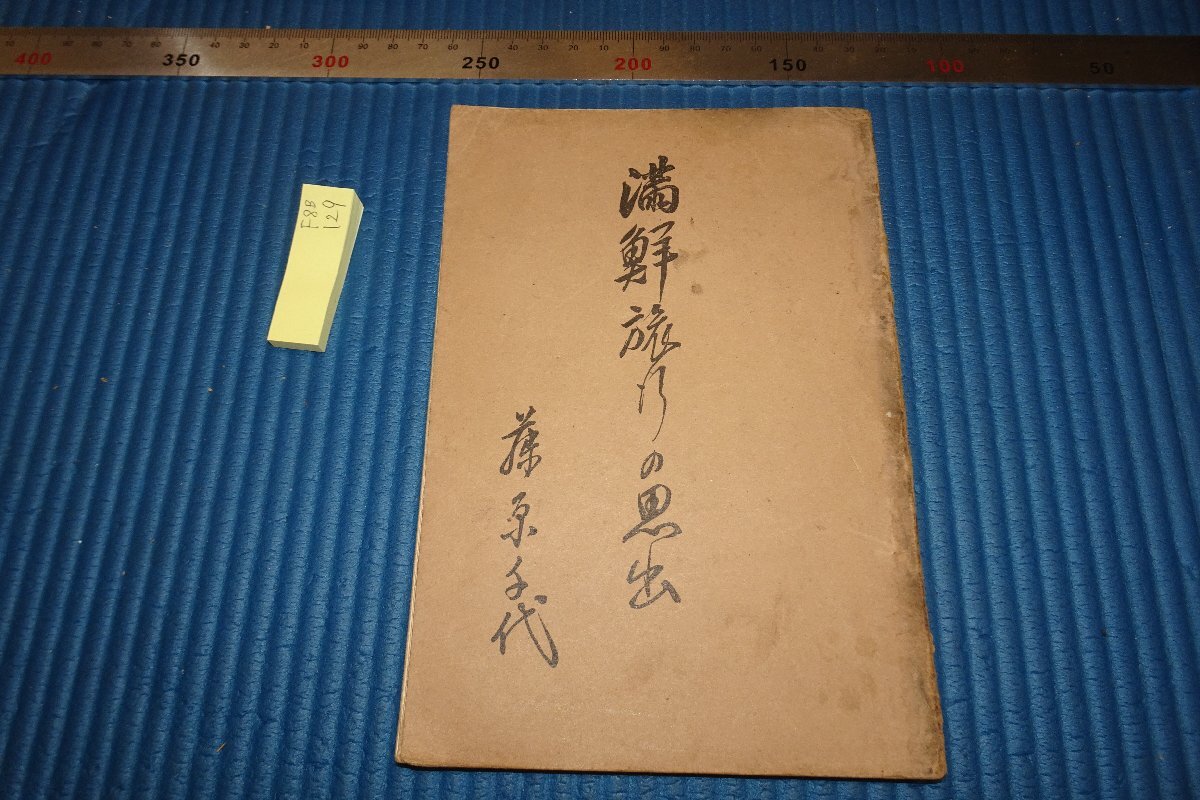 400 350 300 250 200 150 100 50
満鮮旅行の思出
藤原千代
F8B
129